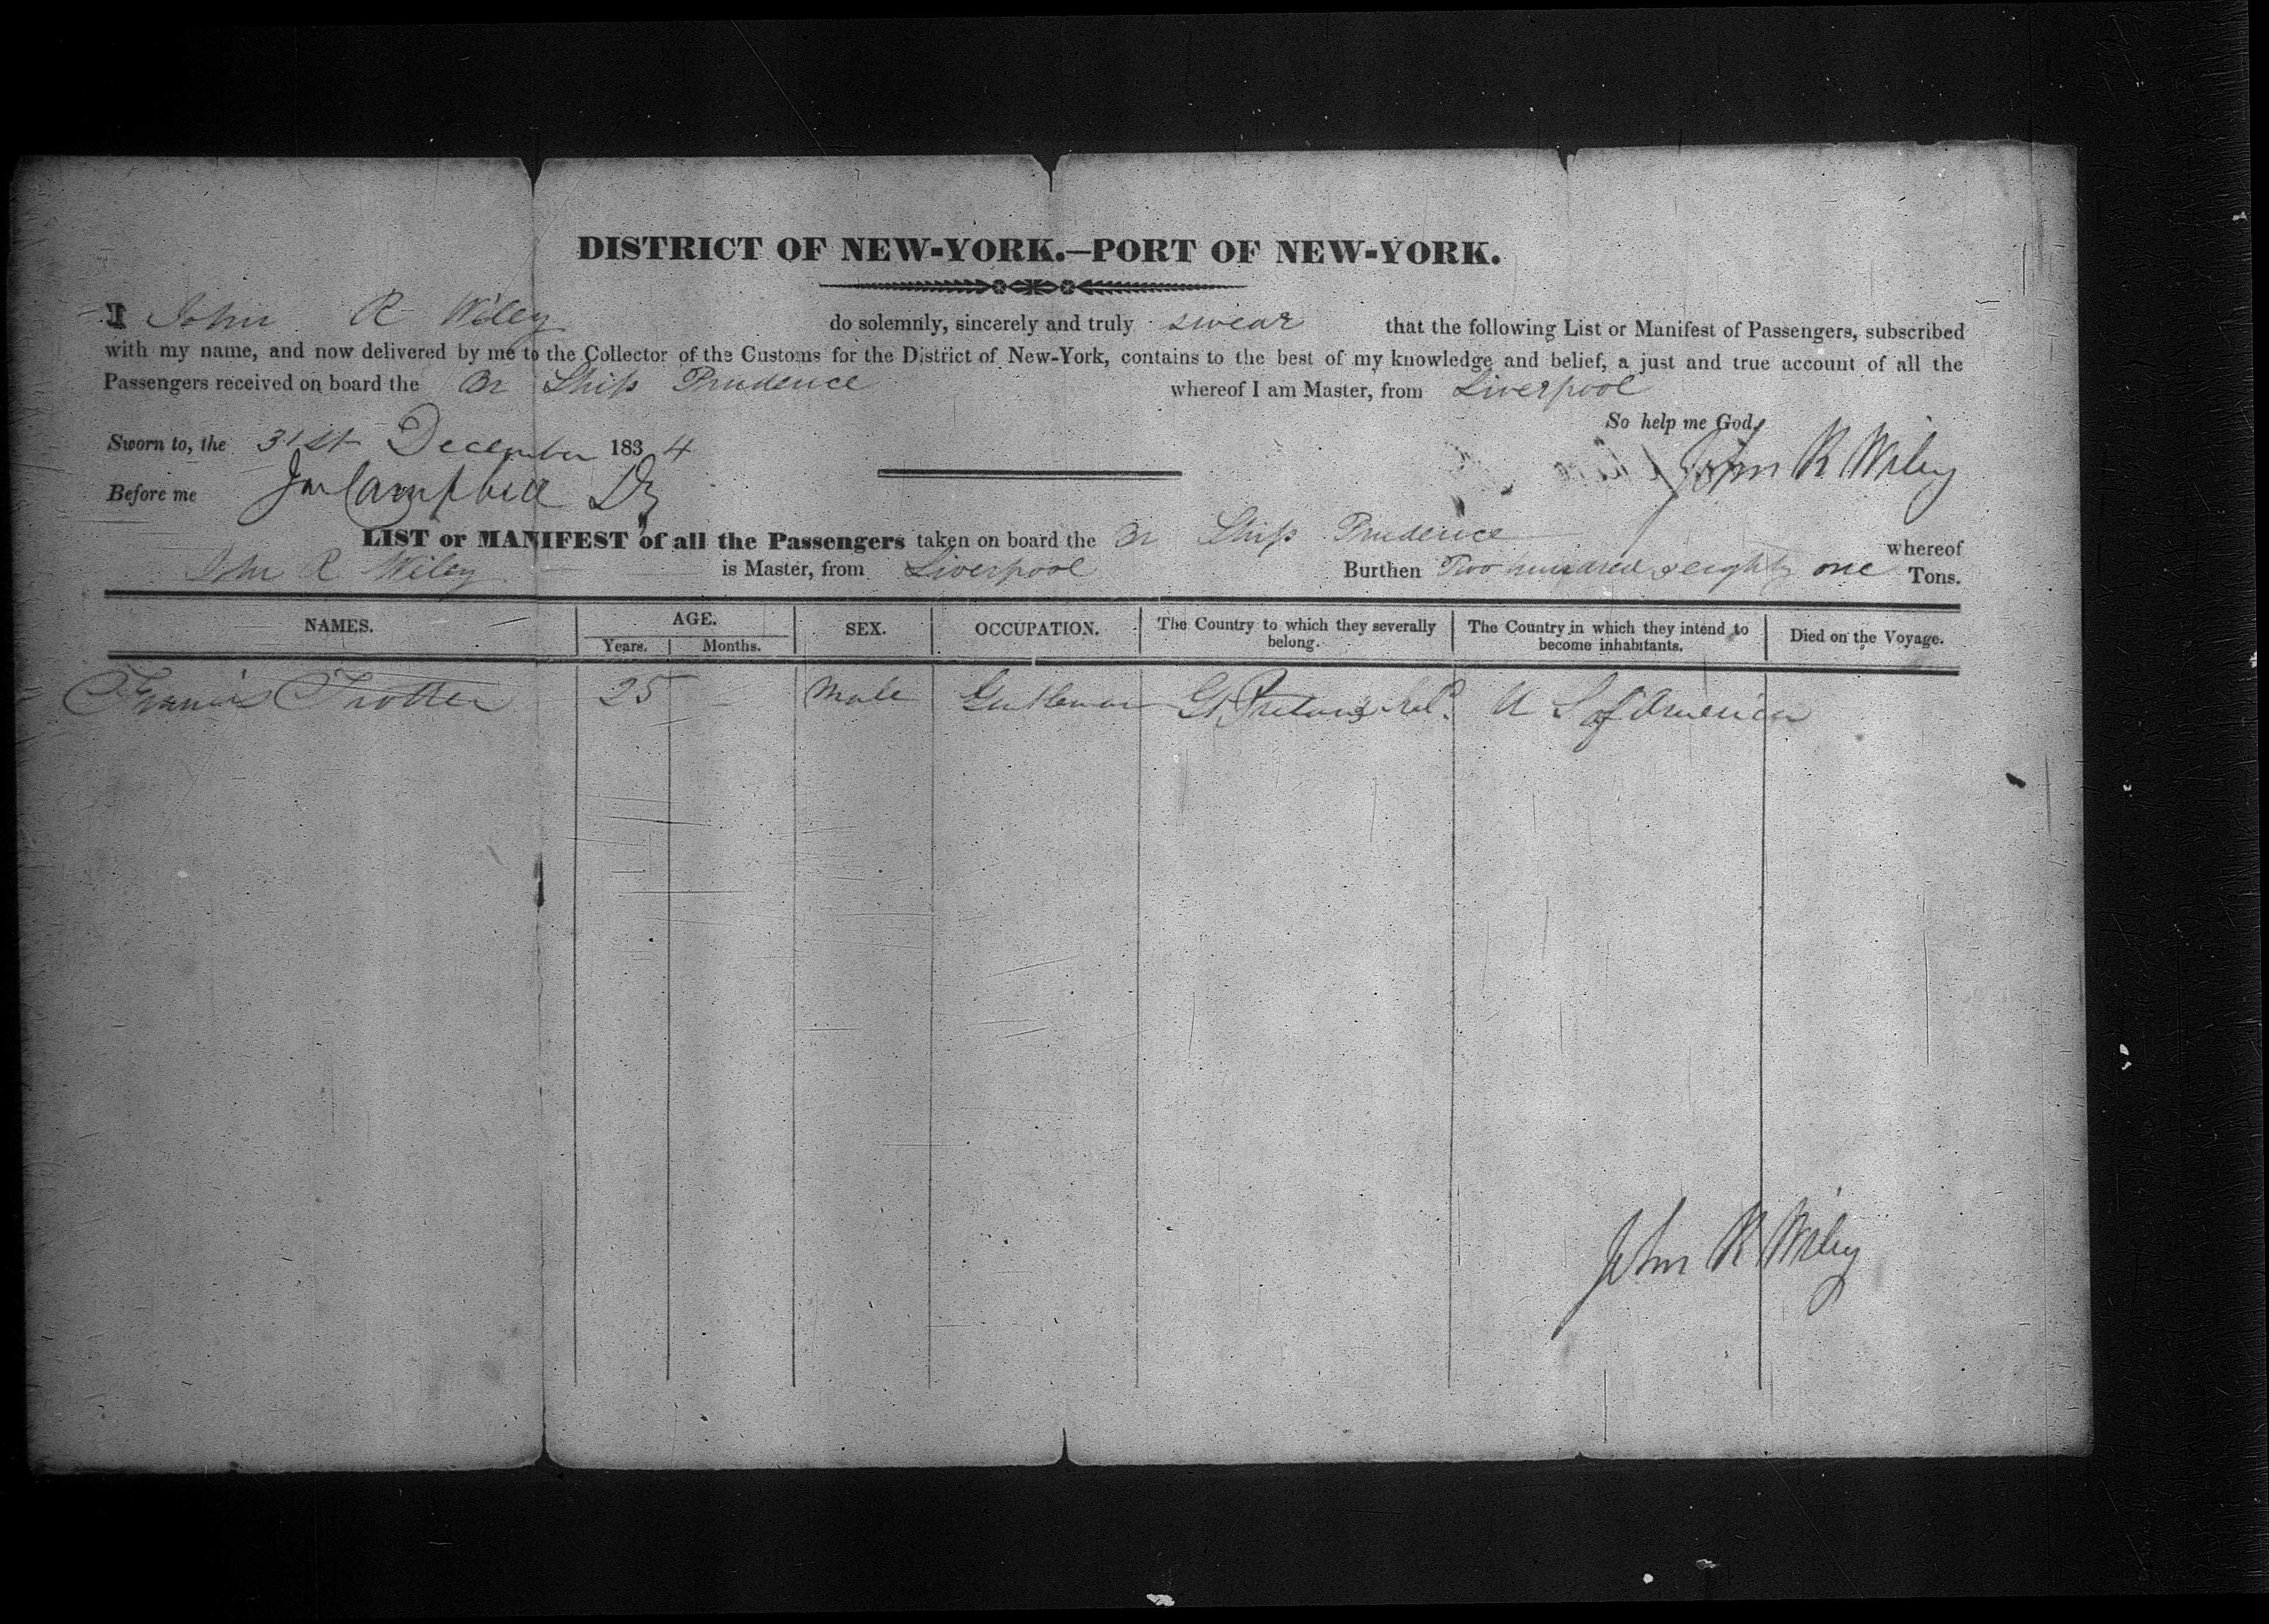 DISTRICT OF NEW-YORK.—PORT OF NEW-YORK.
I John R Wiley do solemnly, sincerely and truly swear that the following List or Manifest of Passengers, subscribed
with my name, and now delivered by me to the Collector of the Customs for the District of New-York, contains to the best of my knowledge and belief, a just and true account of all the
Passengers received on board the Br Ship Prudence whereof I am Master, from Liverpool
So help me God,
Sworn to, the 31st December 1834 John R Wiley
Before me Campbell
LIST or MANIFEST of all the Passengers taken on board the Br Ship Prudence whereof
John R Wiley is Master, from Liverpool Burthen Two hundred & eighty one Tons.
NAMES. AGE. SEX. OCCUPATION. The Country to which they severally belong. The Country in which they intend to become inhabitants. Died on the Voyage.
Years. Months.
Francis Trotter 25 Male Gentleman U S of America
John R Wiley